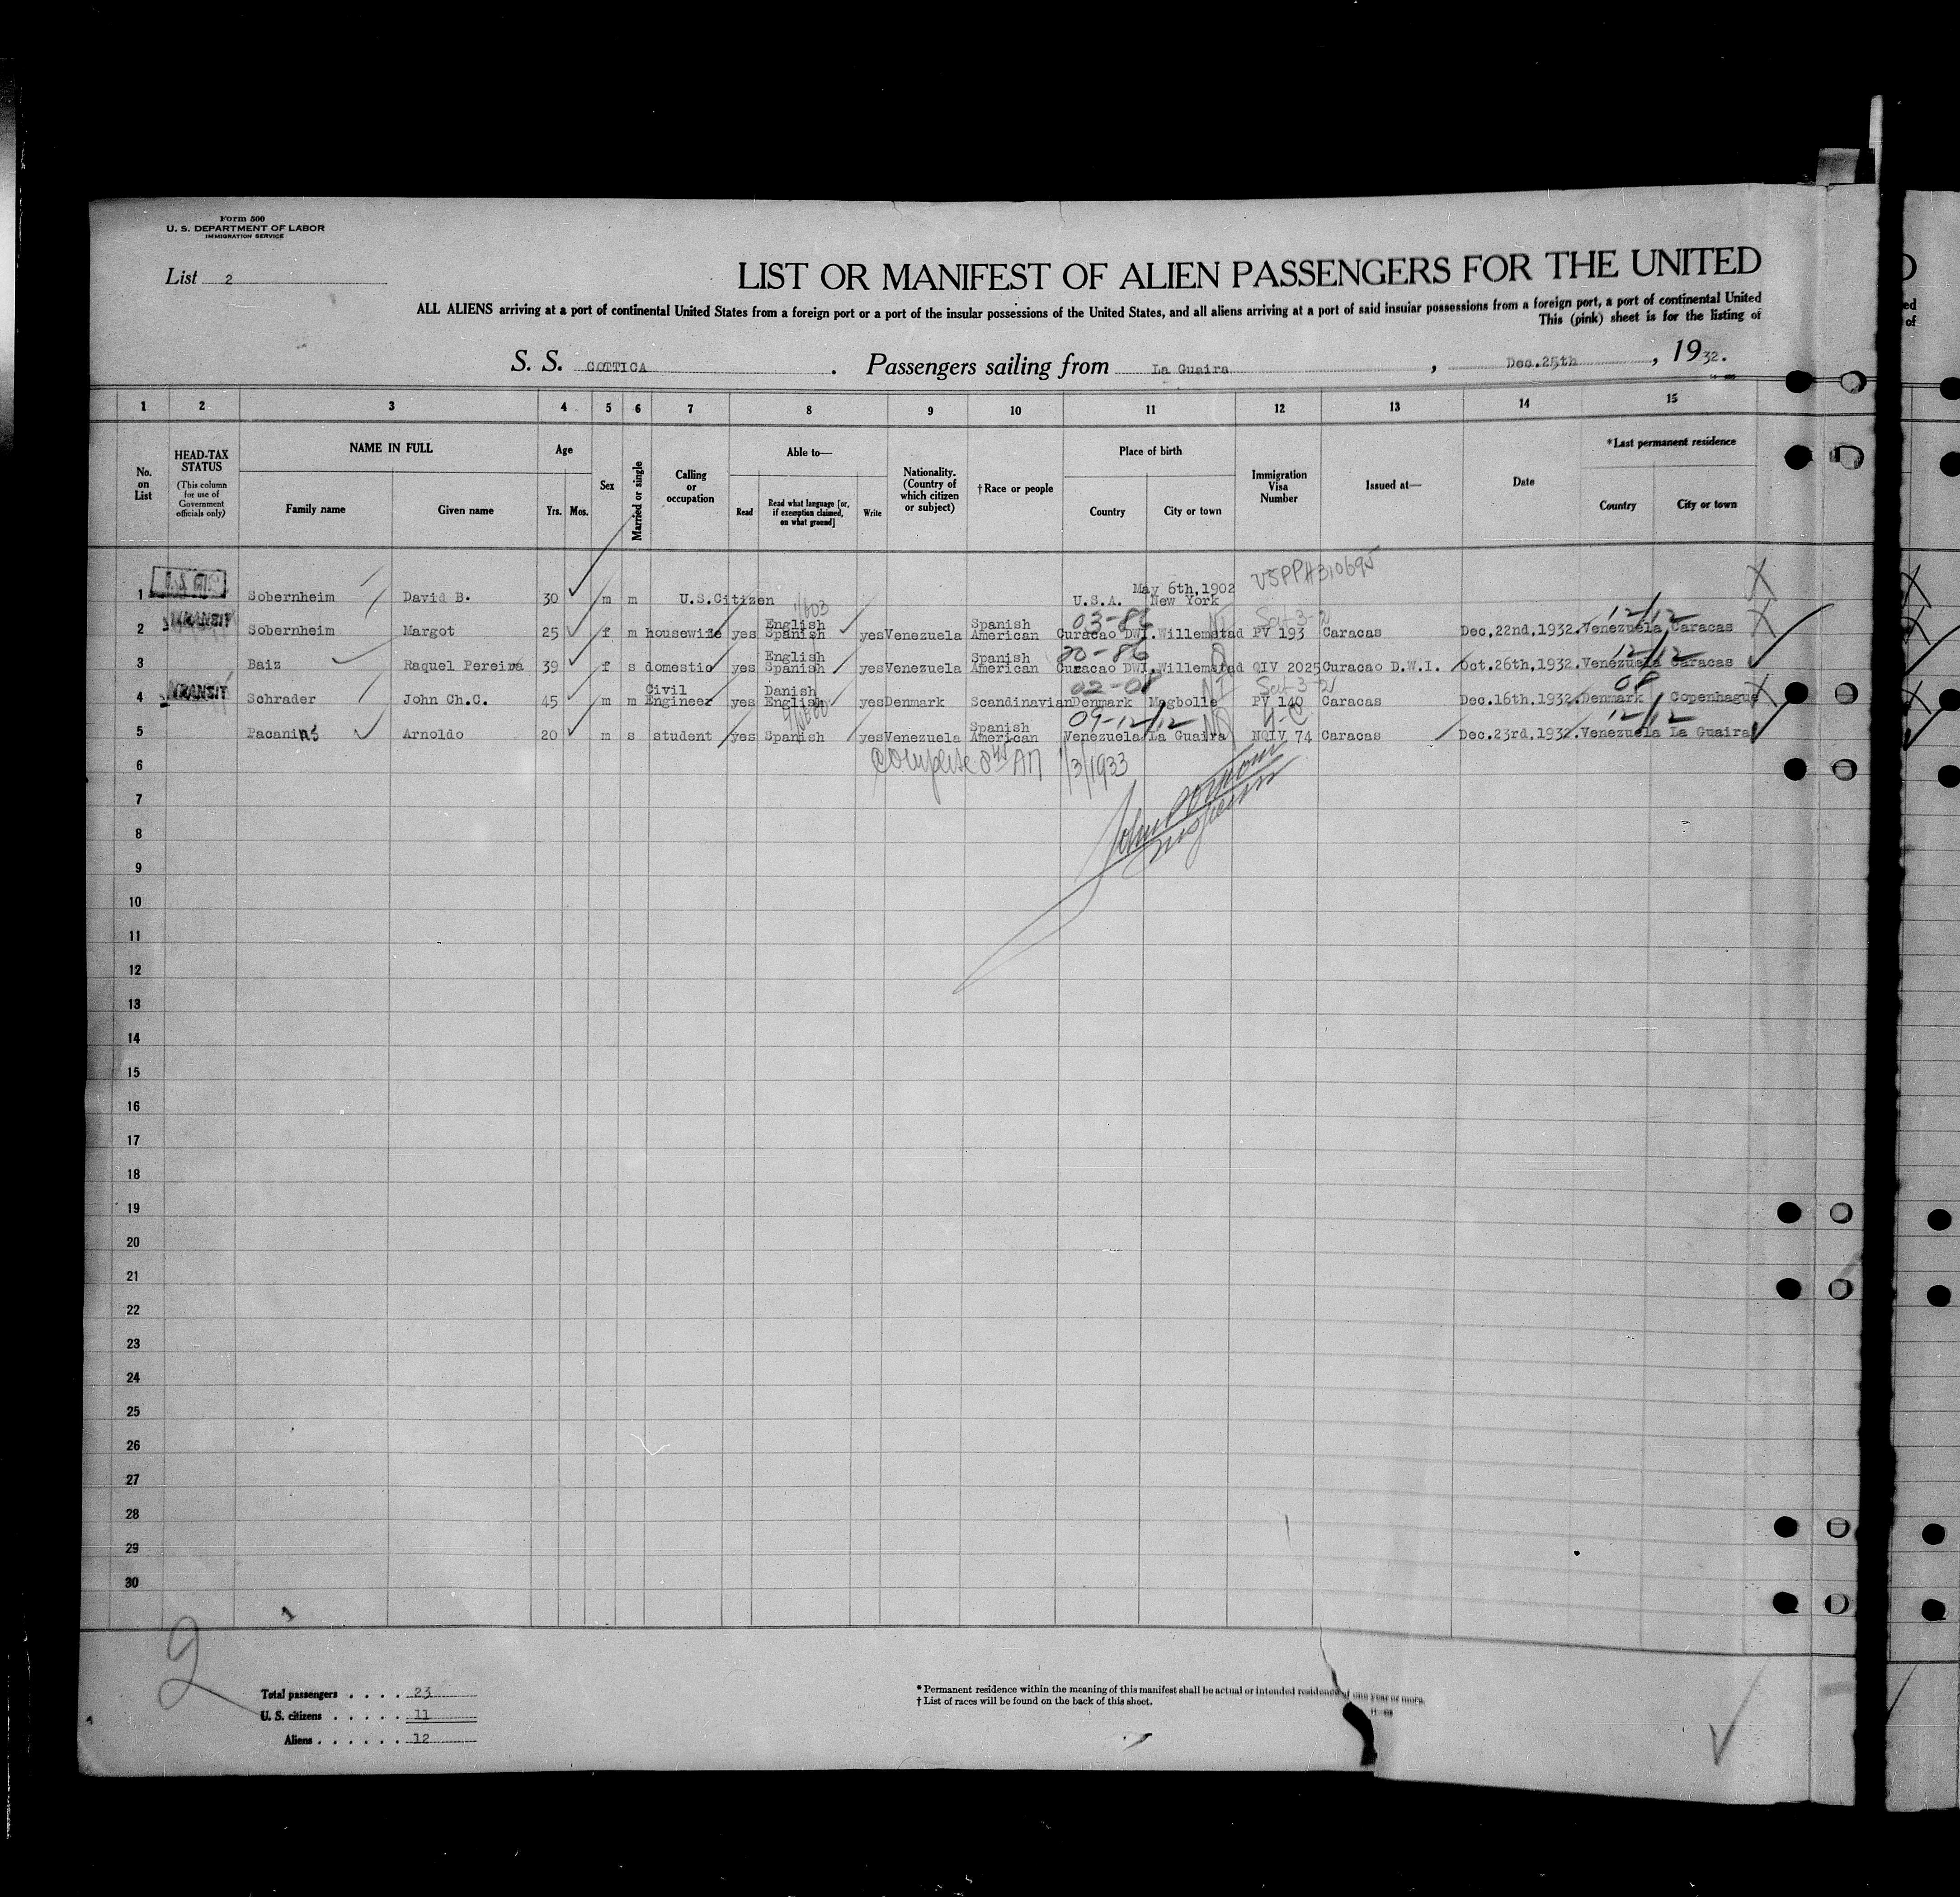 Form 500
U. S. DEPARTMENT OF LABOR
IMMIGRATION SERVICE
List 2
LIST OR MANIFEST OF ALIEN PASSENGERS FOR THE UNITED
ALL ALIENS arriving at a port of continental United States from a foreign port or a port of the insular possessions of the United States, and all aliens arriving at a port of said insular possessions from a foreign port, a port of continental United
This (pink) sheet is for the listing of
S. S. COTTICA . Passengers sailing from La Guaira , Dec.25th , 1932.
1 2 3 4 5 6 7 8 9 10 11 12 13 14 15
No. on List
HEAD-TAX STATUS (This column for use of Government officials only)
NAME IN FULL
Family name Given name
Age
Yrs. Mos.
Sex
Married or single
Calling or occupation
Able to—
Read
Read what language [or, if exemption claimed, on what ground]
Write
Nationality. (Country of which citizen or subject)
†Race or people
Place of birth
Country City or town
Immigration Visa Number
Issued at—
Date
*Last permanent residence
Country City or town
V5PPH310695
May 6th,1902
1 Sobernheim David B. 30 m m U.S.Citizen U.S.A. New York
TRANSIT English Spanish 03-86 12/12
2 Sobernheim Margot 25 f m housewife yes Spanish yes Venezuela American Curacao DWI. Willemstad PV 193 Caracas Dec.22nd,1932. Venezuela Caracas
English Spanish 12/12
3 Baiz Raquel Pereira 39 f s domestic yes Spanish yes Venezuela American Curacao DWI. Willemstad QIV 2025 Curacao D.W.I. Oct.26th,1932. Venezuela Caracas
TRANSIT Civil Danish 08
4 Schrader John Ch.C. 45 m m Engineer yes English yes Denmark Scandinavian Denmark Magbolle PV 140 Caracas Dec.16th,1932. Denmark Copenhague
Spanish 09-12/12 12/12
5 Pacanins Arnoldo 20 m s student yes Spanish yes Venezuela American Venezuela La Guaira NQIV 74 Caracas Dec.23rd,1932. Venezuela La Guaira
1/3/1933
6
7
8
9
10
11
12
13
14
15
16
17
18
19
20
21
22
23
24
25
26
27
28
29
30
2
Total passengers . . . . 23
U. S. citizens . . . . . 11
Aliens . . . . . . 12
* Permanent residence within the meaning of this manifest shall be actual or intended residence of one year or more.
† List of races will be found on the back of this sheet.